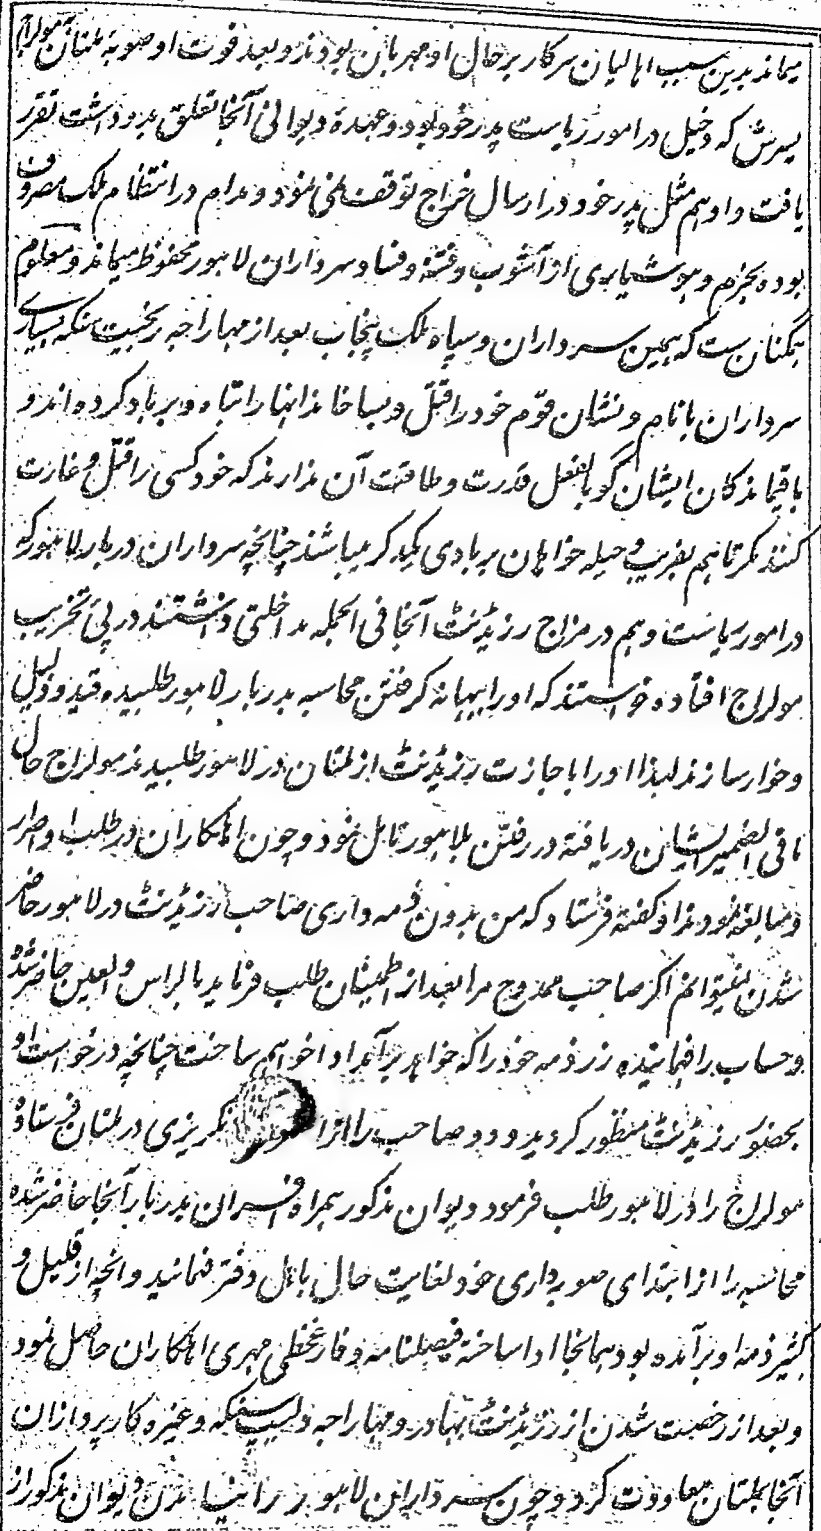 میماند بدین سبب اهالیان سرکار بر حال او مهربان بودند و بعد فوت او صوبهٔ ملتان به مولراج
پسرش که دخیل در امور ریاست پدر خود بود و عهدهٔ دیوانی آنجا تعلق بدو داشت تقرر
یافت و او هم مثل پدر خود در ارسال خراج توقف نمی نمود و مدام در انتظام ملک مصروف
بوده بحزم و هوشیاری از آشوب و فتنه و فساد سرداران لاهور محفوظ میماند و معلوم
همگنان ست که همین سرداران و سپاه ملک پنجاب بعد از مهاراجه رنجیت سنگه بسیاری
سرداران با نام و نشان قوم خود را قتل و بسا خاندانها را تباه و برباد کرده اند و
باقیماندگان ایشان گو بالفعل قدرت و طاقت آن ندارند که خود کسی را قتل و غارت
کنند مگر تا هم بفریب و حیله خواهان بربادی یکدگر میباشند چنانچه سرداران دربار لاهور که
در امور ریاست و هم در مزاج رزیڈنٹ آنجا فی الجمله مداخلتی داشتند در پئ تخریب
مولراج افتاده خواستند که او را ببهانه گرفتن محاسبه بدربار لاهور طلبیده قید و ذلیل
و خوار سازند لهذا او را باجازت رزیڈنٹ از ملتان در لاهور طلبیدند مولراج حال
مافی الضمیر ایشان دریافته در رفتن بلاهور تامل نمود و چون اهلکاران در طلب او اصرار
و مبالغه نمودند او گفته فرستاد که من بدون ذمه داری صاحب رزیڈنٹ در لاهور حاضر
شدن نمیتوانم اگر صاحب ممدوح مرا بعد از اطمینان طلب فرماید بالراس والعین حاضر شده
و حساب را فهمانیده زر ذمه خود را که خواهد برآمد ادا خواهم ساخت چنانچه درخواست او
بحضور رزیڈنٹ منظور گردید و دو صاحب را از انگریزی در ملتان فرستاده
مولراج را در لاهور طلب فرمود دیوان مذکور همراه افسران بدربار آنجا حاضر شده
محاسبه را از ابتدای صوبه داری خود لغایت حال باهل دفتر فهمانید و آنچه از قلیل و
کثیر ذمه او برآمده بود همانجا ادا ساخته فیصلنامه و فارغخطی مهری اهلکاران حاصل نمود
و بعد از رخصت شدن از رزیڈنٹ بهادر و مهاراجه دلیپ سنگه و غیره کارپردازان
آنجا بملتان معاودت کرد و چون سرداران لاهور را دیوان مذکور از